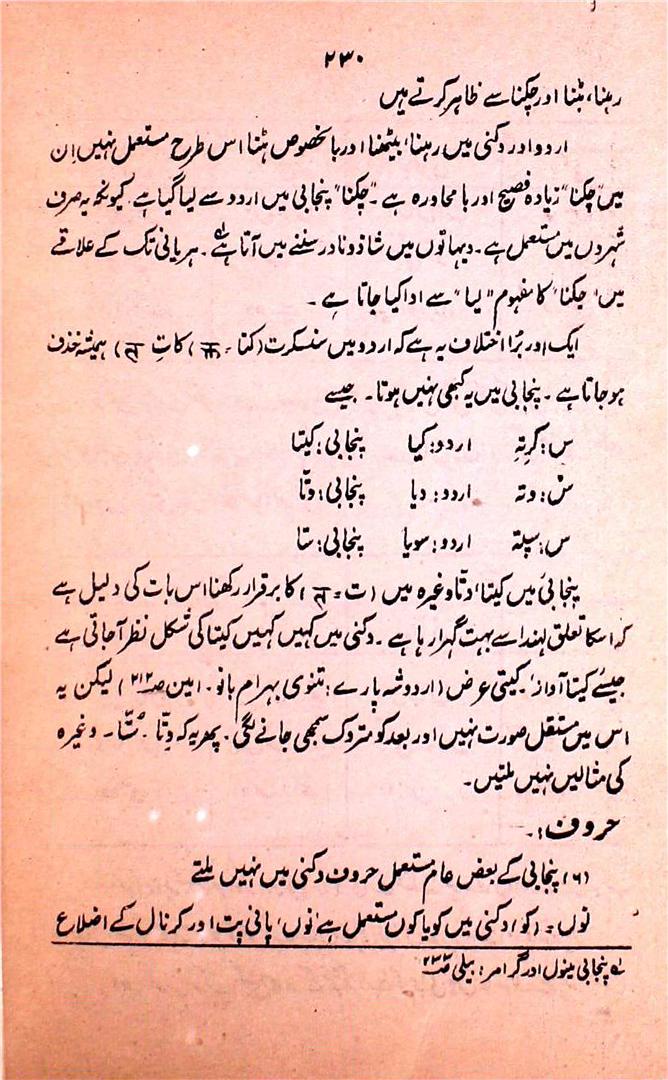 ۲۳۰
رہنا، ہٹنا اور چکنا سے ظاہر کرتے ہیں
اردو اور دکنی میں رہنا، بیٹھنا اور بالخصوص ہٹنا اس طرح مستعمل نہیں ان
میں "چکنا" زیادہ فصیح اور بامحاورہ ہے۔ "چکنا" پنجابی میں اردو سے لیا گیا ہے کیونکہ یہ صرف
شہروں میں مستعمل ہے۔ دیہاتوں میں شاذ و نادر سننے میں آتا ہے۔ ہریانی تک کے علاقے
میں "چکنا" کا مفہوم "لیا" سے ادا کیا جاتا ہے۔
ایک اور بڑا اختلاف یہ ہے کہ اردو میں سنسکرت (کتا۔ क्त) کا تِ त) ہمیشہ حذف
ہو جاتا ہے۔ پنجابی میں یہ کبھی نہیں ہوتا۔ جیسے
س: کرِتہِ اردو: کیا پنجابی: کیتا
س: دتہ اردو: دیا پنجابی: دتّا
س: سپتہ اردو: سویا پنجابی: ستا
پنجابی میں کیتا، دتّا وغیرہ میں (ت = त) کا برقرار رکھنا اس بات کی دلیل ہے
کہ اسکا تعلق لہندا سے بہت گہرا رہا ہے۔ دکنی میں کہیں کہیں کیتا کی شکل نظر آجاتی ہے
جیسے کیتا آواز، کیتی عرض (اردو شہ پارے: تنوی بہرام بانو۔ امین صہ ۲۱۲) لیکن یہ
اس میں مستقل صورت نہیں اور بعد کو متروک سمجھی جانے لگی۔ پھر یہ کہ دِتّا۔ سُتّا۔ وغیرہ
کی مثالیں نہیں ملتیں۔
حروف:۔
(۶) پنجابی کے بعض عام مستعمل حروف دکنی میں نہیں ملتے
نوں = (کو) دکنی میں کو یا کوں مستعمل ہے 'نوں' پانی پت اور کرنال کے اضلاع
لہ پنجابی مینول اور گرامر: بیلی صہ